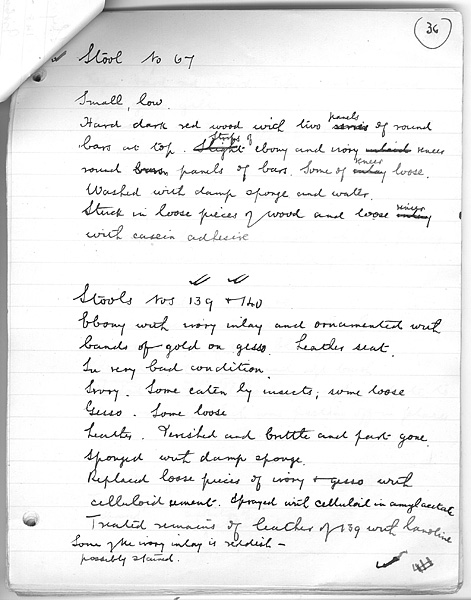 36
Stool No 67
Small, low.
Hard dark red wood with two panels of round
bars at top. Strips of ebony and ivory veneer
round panels of bars. Some of veneer loose.
Washed with damp sponge and water.
Stuck in loose pieces of wood and loose veneer
with casein adhesive
Stools Nos 139 + 140
Ebony with ivory inlay and ornamented with
bands of gold on gesso. Leather seat.
In very bad condition.
Ivory. Some eaten by insects; some loose
Gesso. Some loose
Leather. Perished and brittle and part gone.
Sponged with damp sponge.
Replaced loose pieces of ivory + gesso with
celluloid cement. Sprayed with celluloid in amyl acetate
Treated remains of leather of 139 with lanoline
Some of the ivory inlay is reddish -
possibly stained.